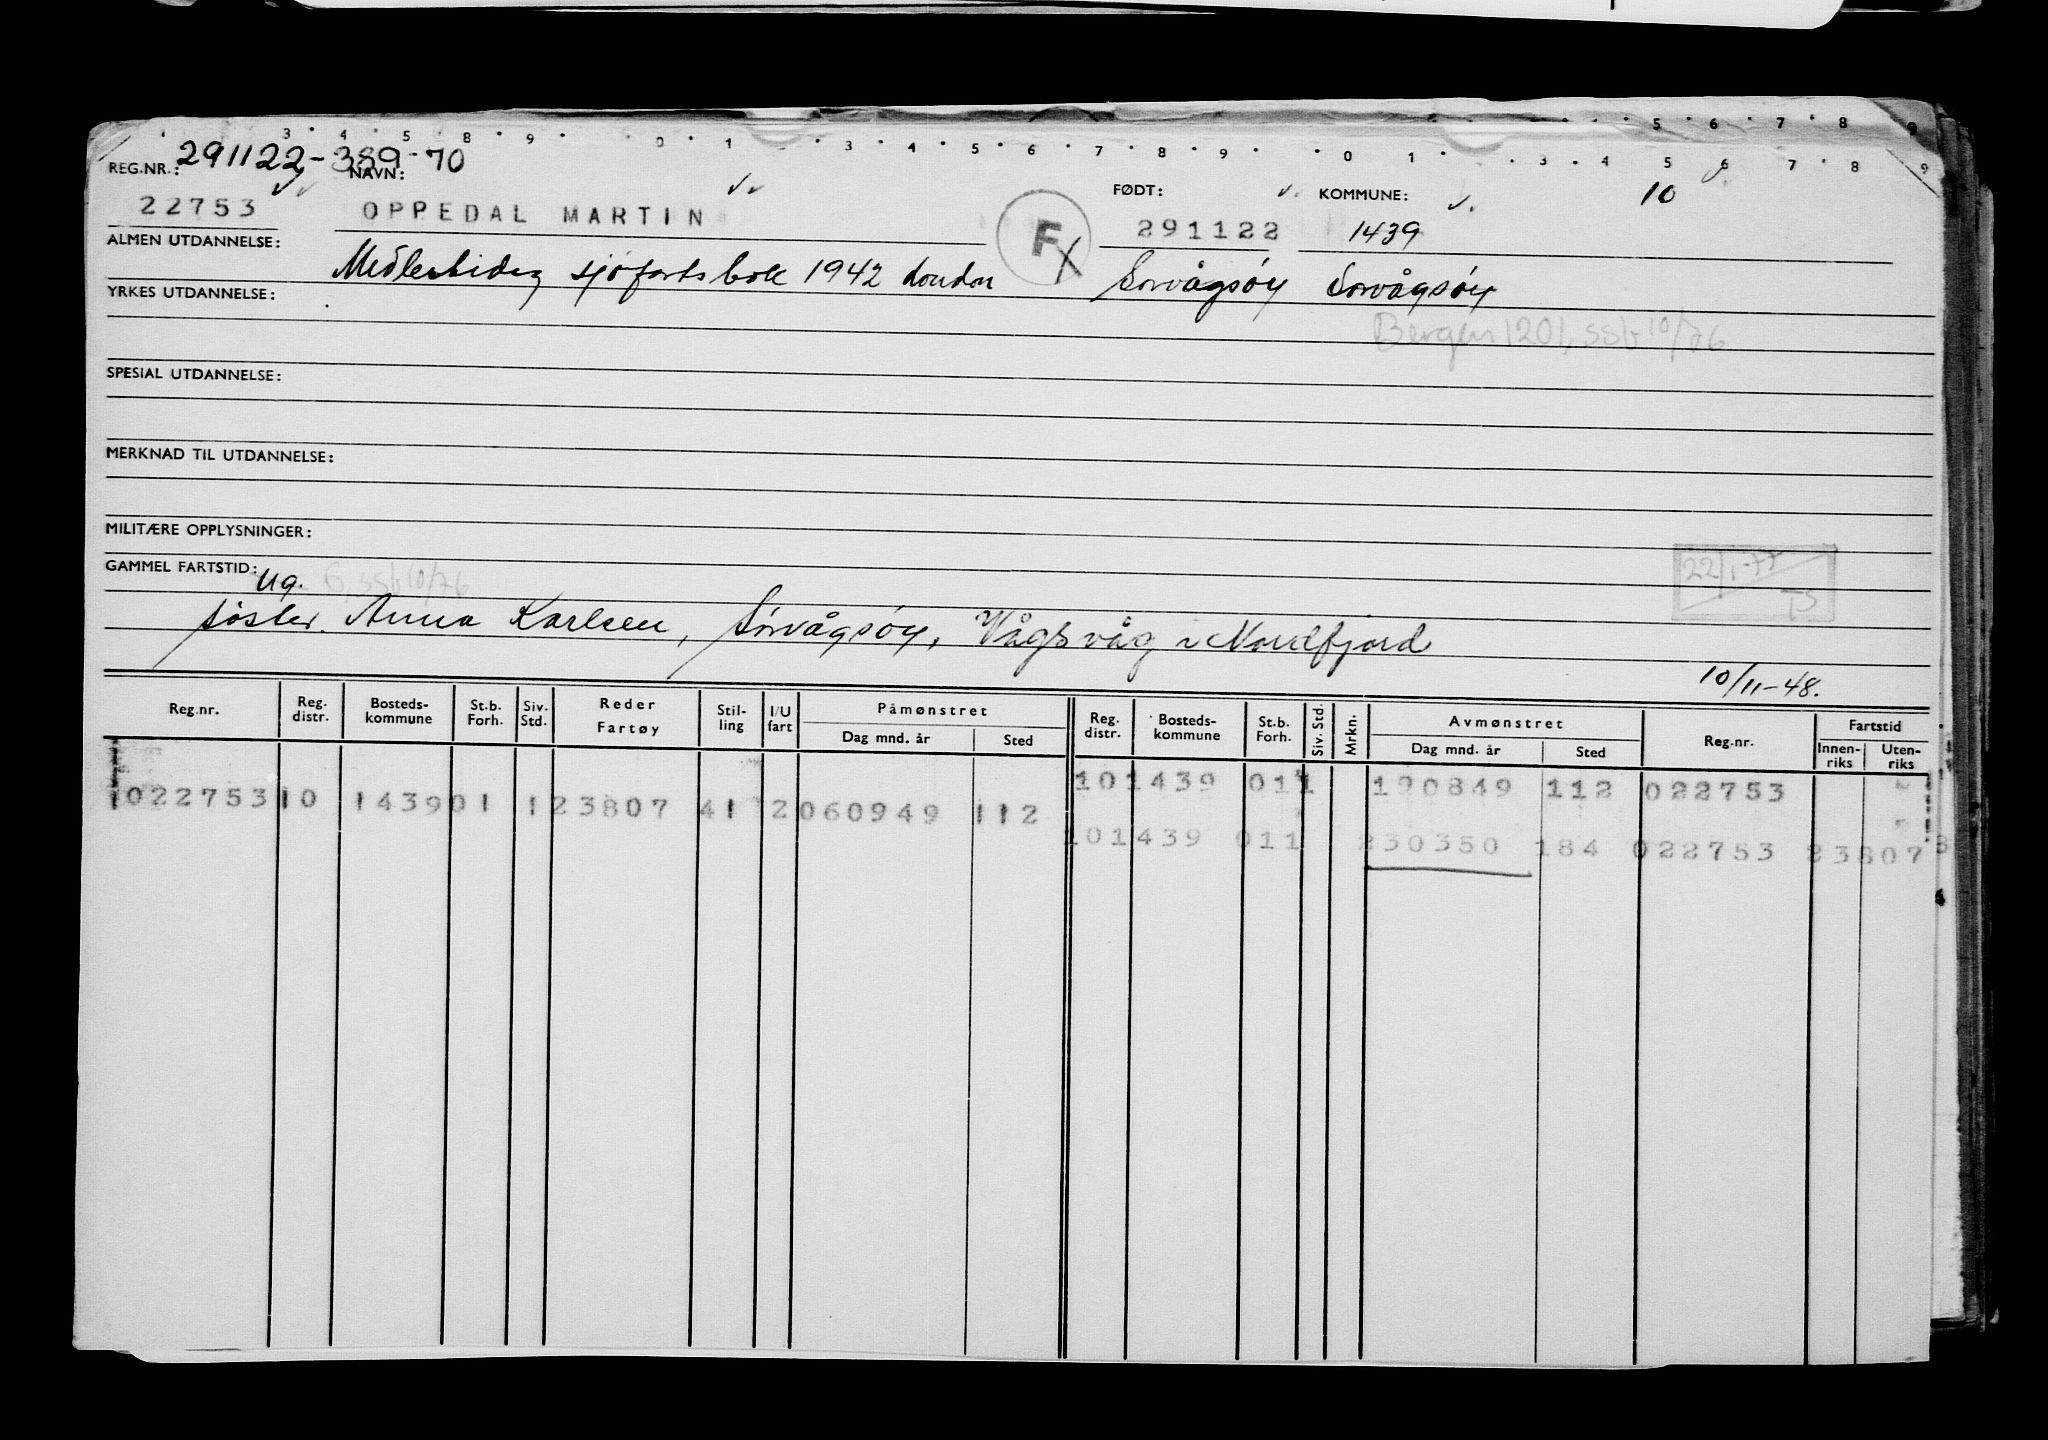 3 4 5 8 9 0 1 3 4 5 6 7 8 9 0 1 3 4 5 6 7 8 9
5 6 7 8 9
REG.NR.: 291122-359-70 NAVN: FØDT: KOMMUNE: 10
22753 OPPEDAL MARTIN F 291122 1439
ALMEN UTDANNELSE: Midlertidig sjøfartsbok 1942 London Sørvågsøy Sørvågsøy
YRKES UTDANNELSE:
Bergen 1201, ssb 10/76
SPESIAL UTDANNELSE:
MERKNAD TIL UTDANNELSE:
MILITÆRE OPPLYSNINGER:
22/1-77
TS
GAMMEL FARTSTID: Ug. G, ssb 10/76
søster. Anna Karlsen, Sørvågsøy, Vågsvåg i Nordfjord
10/11-48.
Reg.nr. Reg. distr. Bosteds-kommune St.b. Forh. Siv. Std. Reder Fartøy Stil-ling I/U fart Påmønstret Dag mnd. år Sted Reg. distr. Bosteds-kommune St.b. Forh. Siv. Std. Mrkn. Avmønstret Dag mnd. år Sted Reg.nr. Fartstid Innen-riks Uten-riks
101439 011 190849 112 022753
1022753 10 143901 123807 41 2060949 112
101439 011 230350 184 022753 23807